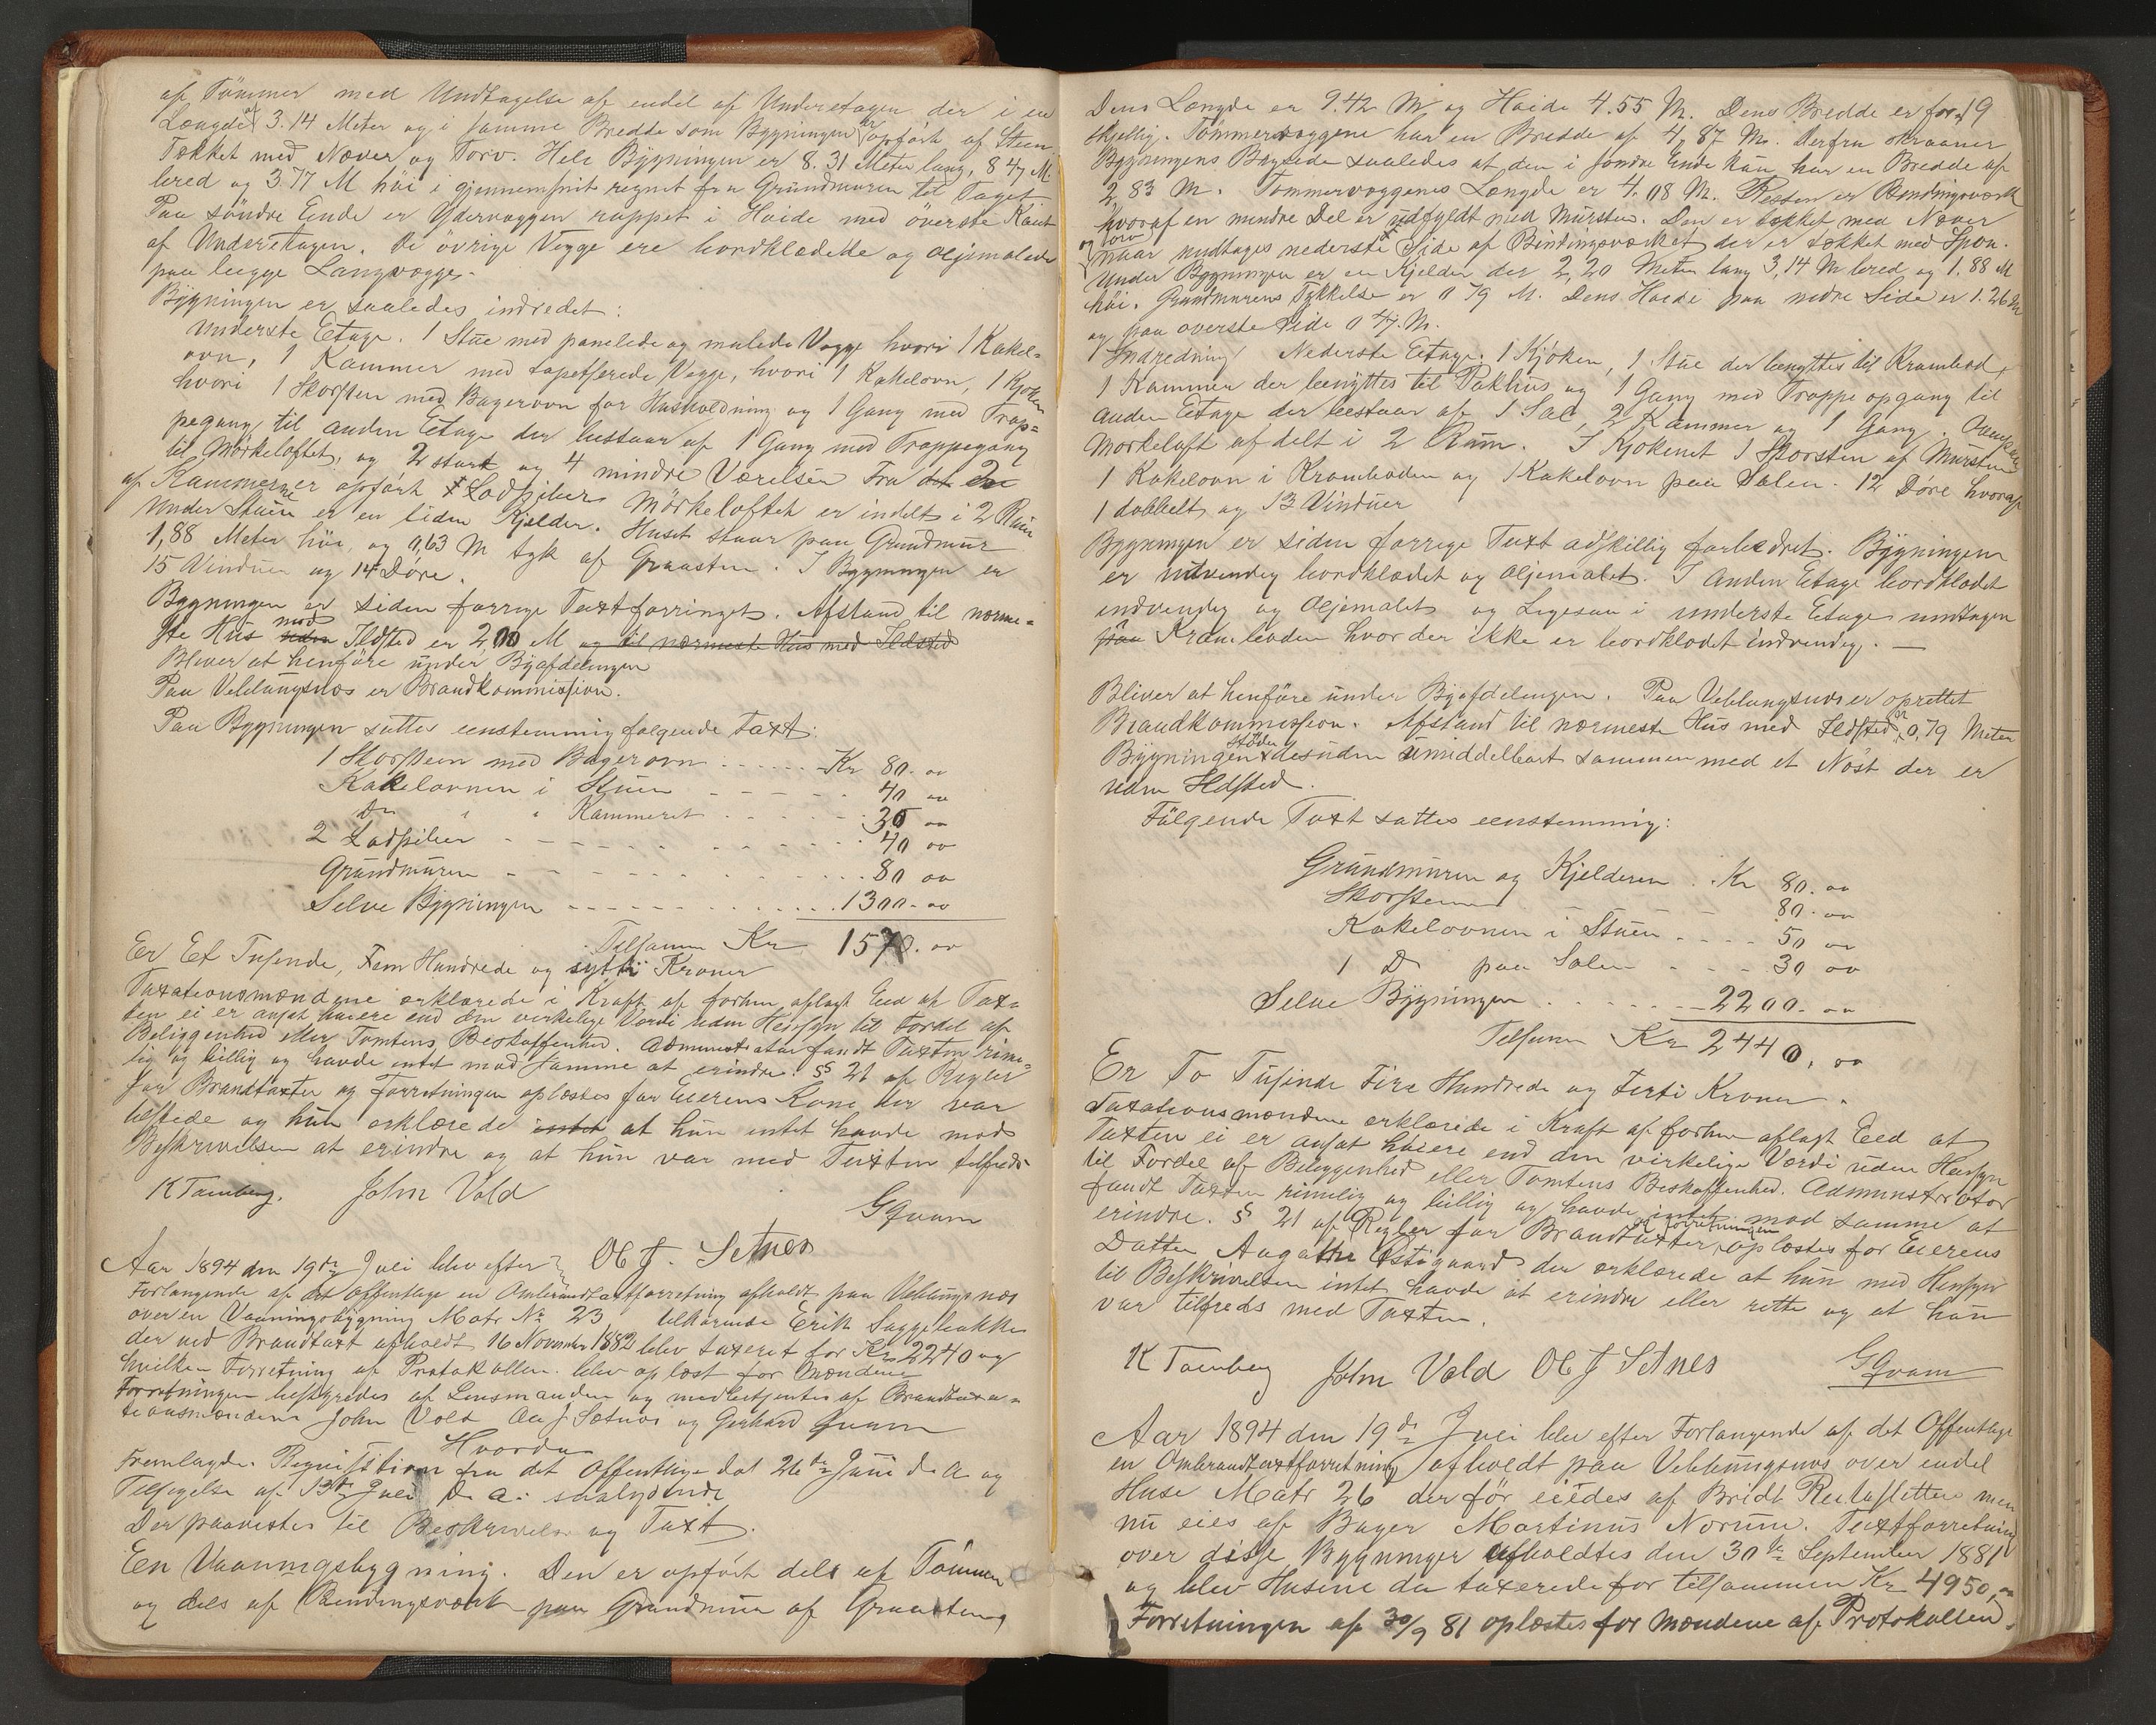 af Tömmer med Undtagelse af endel af Underetagen der i en
Længde af 3.14 Meter og i samme Bredde som Bygningen er opført af Steen.
Tækket med Næver og Torv. Hele Bygningen er 8.31 Meter lang, 8 47 M.
bred og 3.77 M höi i gjennemsnit regnet fra Grundmuren til Taget.
Paa söndre Ende er Ydervæggen rappet i Høide med överste Kant
af Underetagen. De övrige Vægge ere bordklædte og oljemalede
paa begge Langvægge.
Bygningen er saaledes indredet:
Underste Etage. 1 Stue med panelede og malede Vægge hvori 1 Kakel=
ovn, 1 Kammer med tapetserede Vægge, hvori 1 Kakelovn, 1 Kjøken
hvori 1 Skorsten med Bagerovn for Husholdning og 1 Gang med Trap=
pegang til anden Etage der bestaar af 1 Gang med Trappegang
til Mørkeloftet, og 2 størt og 4 mindre Værelser Fra det 2de
af Kammerne er opført Ladpiber Mörkeloftet er indelt i 2 Rum
Under Stuen er en liden Kjelder. Huset staar paa Grundmur
1,88 Meter höi, og 0,63 M tyk af Graasten. I Bygningen er
15 Vinduer og 14 Döre.
Bygningen er siden forrige Taxt forringet. Afstand til nærme=
ste Hus uden med Ildsted er 2,00 M og til nærmeste Hus med Ildsted
Bliver at henføre under Byafdelingen
Paa Veblungsnæs er Brandkommission.
Paa Bygningen sattes eenstemmig følgende Taxt:
1 Skorsteen med Bagerovn . . . . . . Kr 80. oo
Kakelovnen i Stuen - - - - - 40 oo
Do " " Kammeret . . . . . . 30 oo
2 Ladpiber - - - - - . . . . . 40 oo
Grundmuren - - - - - . . . . . 80 oo
Selve Bygningen - - - - . . . . 1300. oo
Tilsammen Kr 1570. oo
Er Et Tusende, Fem Hundrede og sytti Kroner
Taxationsmændene erklærede i Kraft af forhen aflagt Eed at Tax=
ten ei er ansat høiere end den virkelige Værdi uden Hensyn til Fordel af
Beliggenhed eller Tomtens Beskaffenhed. Administrator fandt Taxten rime=
lig og billig og havde intet mod samme at erindre. § 21 af Regler
for Brandtaxter og Forretningen oplæstes for Eierens Kone der var
tilstede og hun erklærede intet at hun intet havde mod
Beskrivelsen at erindre og at hun var med Taxten tilfreds.
K Tomberg. John Vold
G Qvam
Ole J. Setnes
Aar 1894 den 19de Juli blev efter
Forlangende af det Offentlige en Ombrandtaxtforretning afholdt paa Veblungsnæs
over en Vaaningsbygning Matr No 23 tilhørende Erik Saggebakke
der ved Brandtaxt afholdt 16 November 1882 blev taxeret for Kr 2240 og
hvilken Forretning af Protokollen blev oplæst for Mændene
Forretningen bestyredes af Lensmanden og medbetjentes af Brandtaxa=
tionsmændene John Vold Ole J Sætnes og Gerhard Qvam
Hvorda
Fremlagdes Requisition fra det Offentlige dat 26de Juni d. A. og
Tilsigelse af 13de Juli d. A: saalydende
Der paavistes til Beskrivelse og Taxt.
En Vaaningsbygning. Den er opfört dels af Tömmer
og dels af Bindingsværk paa Grundmur af Graasteen,
19
Dens Længde er 9.42 M og Høide 4.55 M. Dens Bredde er for-
skjellig. Tömmervæggene har en Bredde af 4,87 M. Derfra skraaner
Bygningens Bagside saaledes at den i söndre Ende kun har en Bredde af
2,83 M. Tömmervæggenes Længde er 4.08 M. Resten er Bindingsværk
hvoraf en mindre Del er udfyldt med Mursten. Den er tækket med Næver
og Torv naar undtages nederste Side af Bindingsværket der er tækket med Spon.
Under Bygningen er en Kjelder der 2,20 Meter lang 3,14 M bred og 1.88 M
höi. Grundmurens Tykkelse er 0 79 M. Dens Høide paa nedre Side er 1.26 M
og paa överste Side 0 47. M.
Indredning Nederste Etage. 1 Kjøken, 1 Stue der benyttes til Krambod,
1 Kammer der benyttes til Pakhus og 1 Gang med Trappe opgang til
anden Etage der bestaar af 1 Sal, 2 Kammer og 1 Gang.
Mørkeloft afdelt i 2 Rum. I Kjøkenet 1 Skorsten af Mursteen
1 Kakelovn i Kramboden og 1 Kakelovn paa Salen. 12 Döre hvoraf
1 dobbelt og 13 Vinduer
Bygningen er siden forrige Taxt adskillig forbedret. Bygningen
er udvendig bordklædet og oljemalet. I Anden Etage bordklædet
indvendig og Oljemalet og Ligesaa i underste Etage undtagen
paa Kramboden hvor der ikke er bordklædet indvendig. —
Bliver at henføre under Byafdelingen. Paa Veblungsnæs er oprettet
Brandkommission. Afstand til nærmeste Hus med Ildsted er 0,79 Meter
Bygningen stöder desuden umiddelbart sammen med et Nöst der er
uden Ildsted.
Fölgende Taxt sattes eenstemmig:
Grundmuren og Kjelderen . . Kr 80. oo
Skorstenen - - 80. oo
Kakelovnen i Stuen . . - - - 50 oo
1 Do paa Salen - - - 30 oo
Selve Bygningen . . . . . - - 2200. oo
Tilsammen Kr 2440. oo
Er To Tusinde Fire Hundrede og Førti Kroner.
Taxationsmændene erklærede i Kraft af forhen aflagt Eed at
Taxten ei er ansat høiere end den virkelige Værdi uden Hensyn
til Fordel af Beliggenhed eller Tomtens Beskaffenhed. Administrator
fandt Taxten rimelig og billig og havde intet mod samme at
erindre. § 21 af Regler for Brandtaxter og Forretningen oplæstes for Eierens
Datter Aagathe Østigaard der erklærede at hun med Hensyn
til Beskrivelsen intet havde at erindre eller rette og at hun
var tilfreds med Taxten.
K Tomberg John Vold Ole J Setnes G Qvam
Aar 1894 den 19de Juli blev efter Forlangende af det Offentlige
en Ombrandtaxtforretning afholdt paa Veblungsnæs over endel
Huse Matr 26 der før eiedes af Bridt men
nu eies af Bager Martinus Norum. Taxtforretning
over disse Bygninger afholdtes den 30te September 1881
og blev Husene da taxerede for tilsammen Kr 4950,oo
Forretningen af 30/9 81 oplæstes for Mændene af Protokollen.